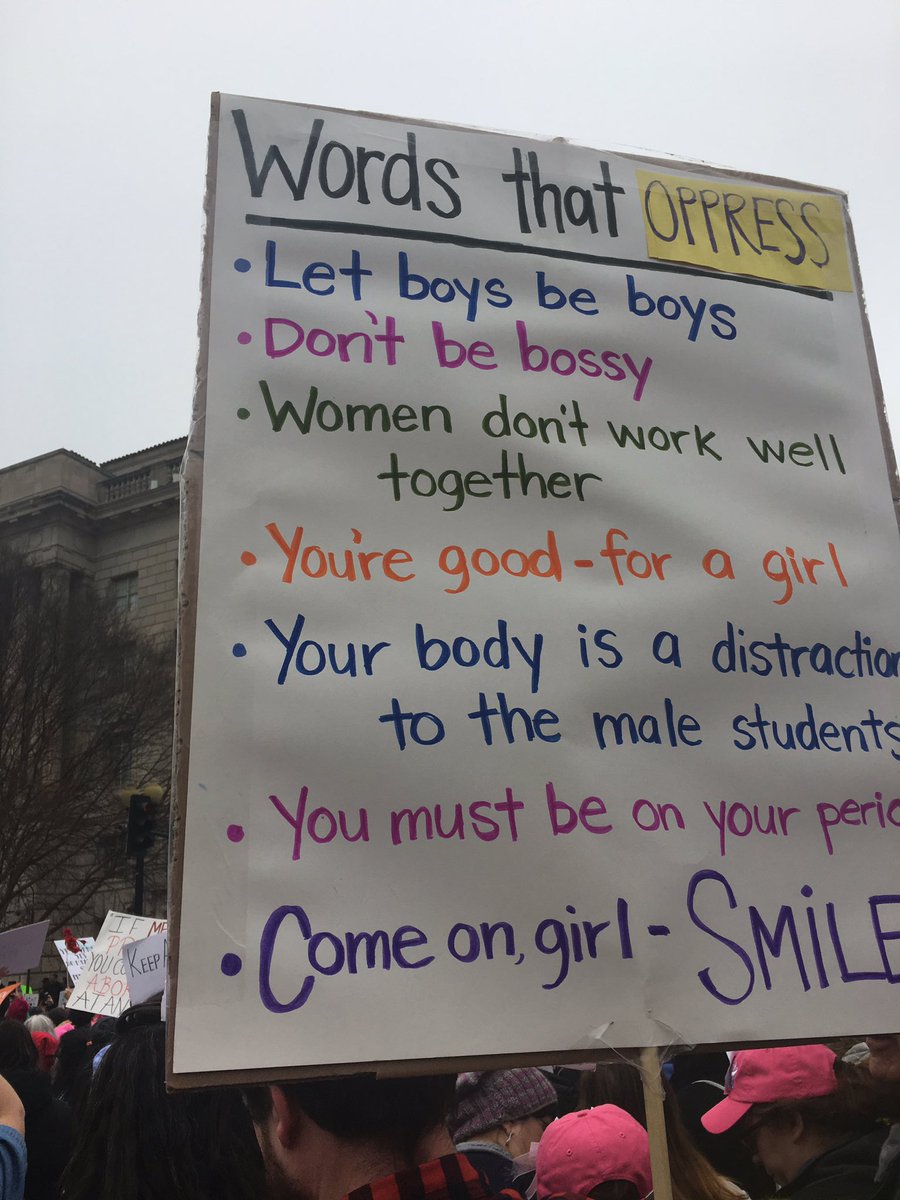 Words that OPPRESS
• Let boys be boys
• Don't be bossy
• Women don't work well
together
• You're good - for a girl
• Your body is a distraction
to the male students
• You must be on your
• Come on, girl - SMILE
IF
YOU
ABOR
AT AN
KEEP